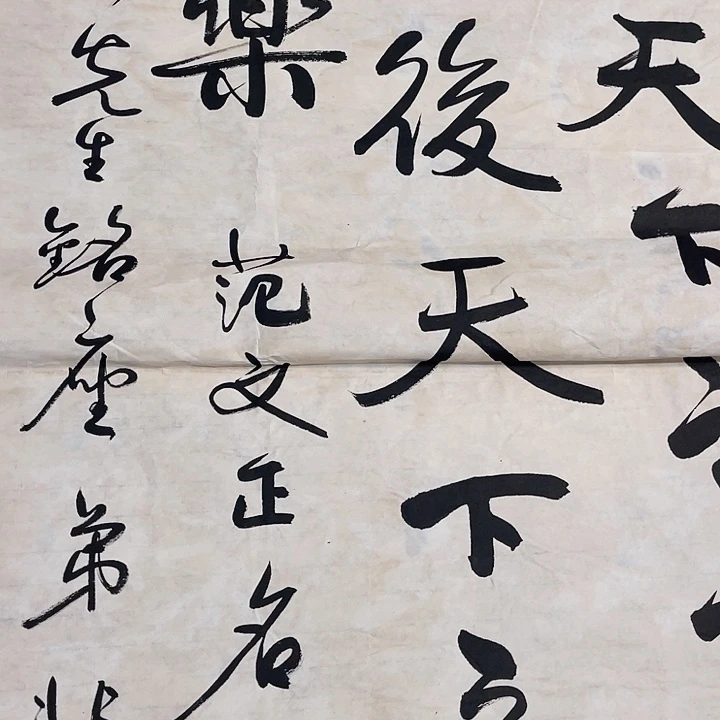 天下
後天下
樂 范文正名
先生銘座 弟